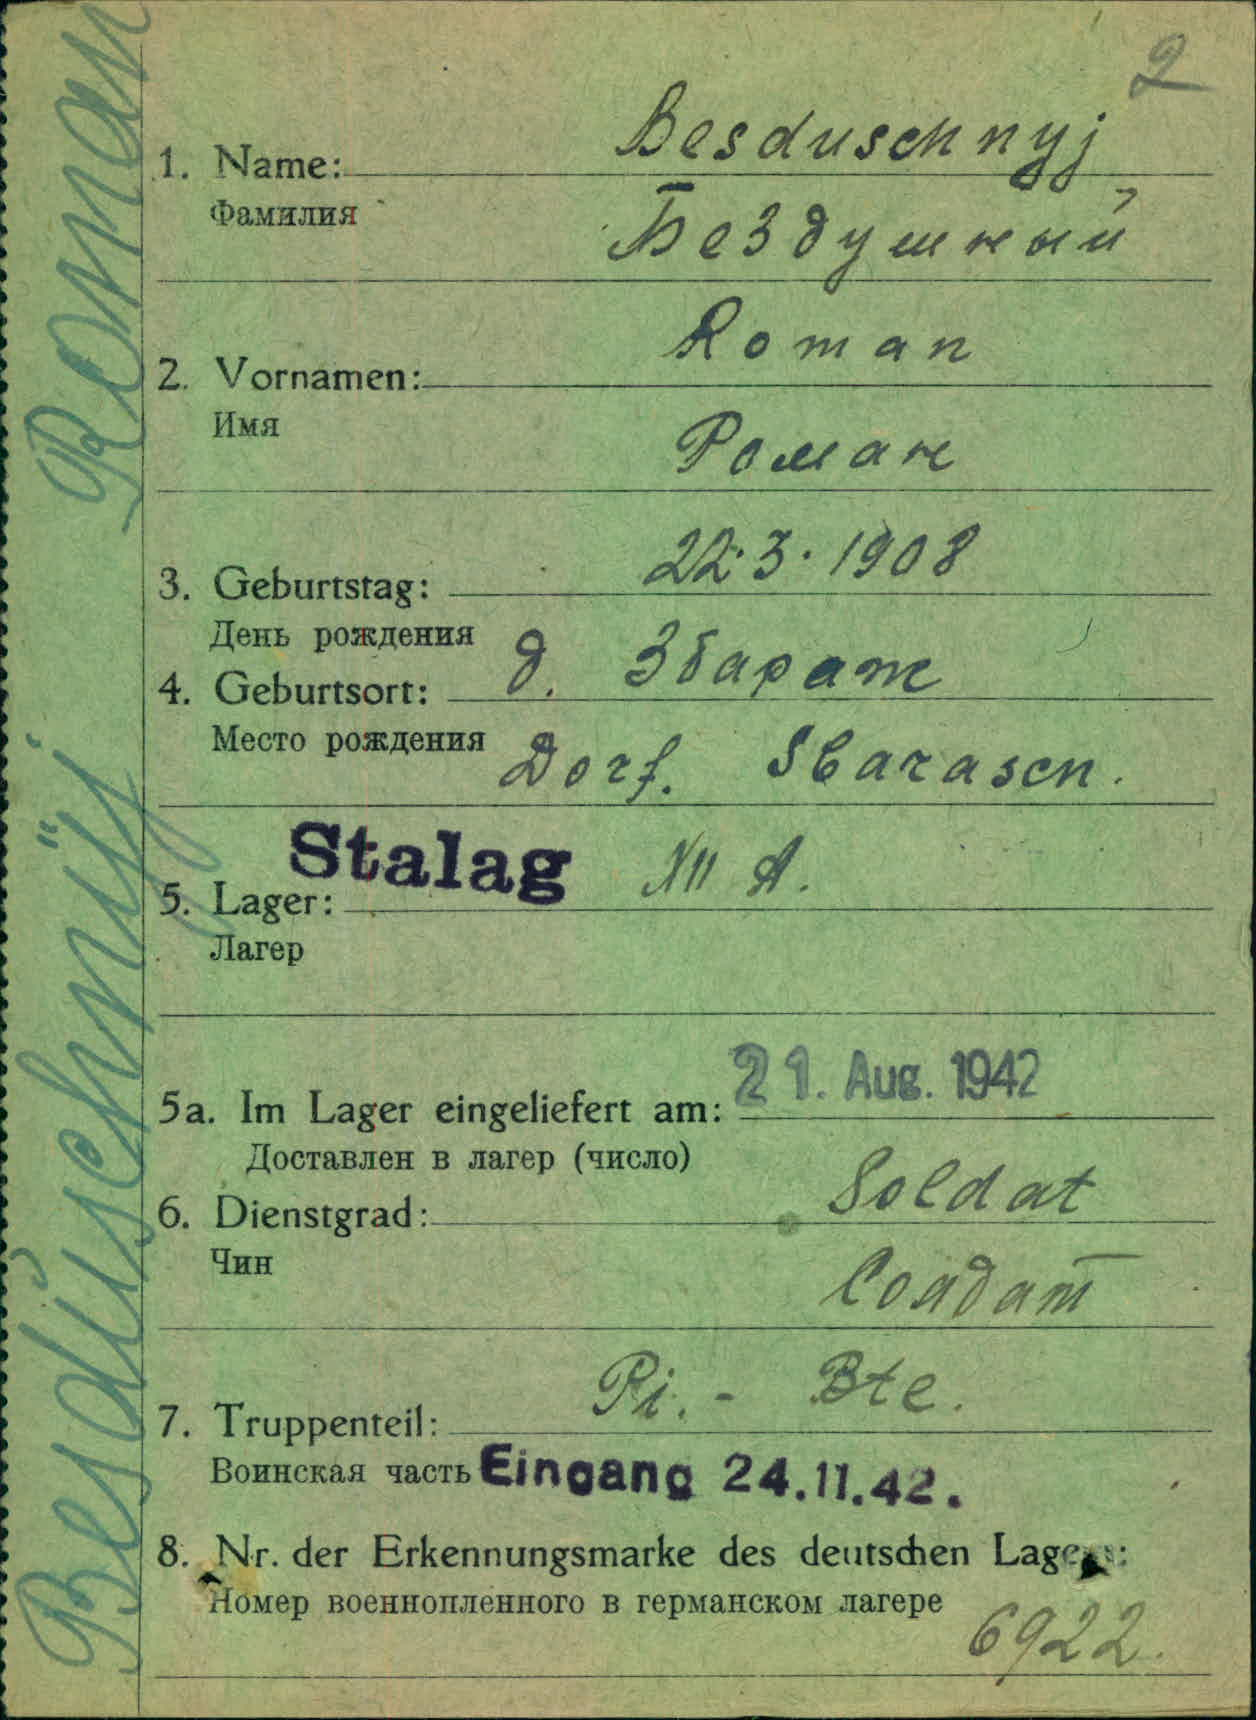 2
Besduschnyj
1. Name:
Фамилия
Бездушный
Roman
2. Vornamen:
Имя
Роман
22.3.1908
3. Geburtstag:
День рождения
4. Geburtsort: д. Збараж
Место рождения Dorf. Sbarasch.
Stalag XII A.
5. Lager:
Лагер
5a. Im Lager eingeliefert am: 21. Aug. 1942
Доставлен в лагер (число)
6. Dienstgrad: Soldat
Чин
Солдат
7. Truppenteil: Pi.- Bte.
Воинская часть Eingang 24.11.42.
8. Nr. der Erkennungsmarke des deutschen Lagers:
Номер военнопленного в германском лагере
6922.
Besduschnyj Roman